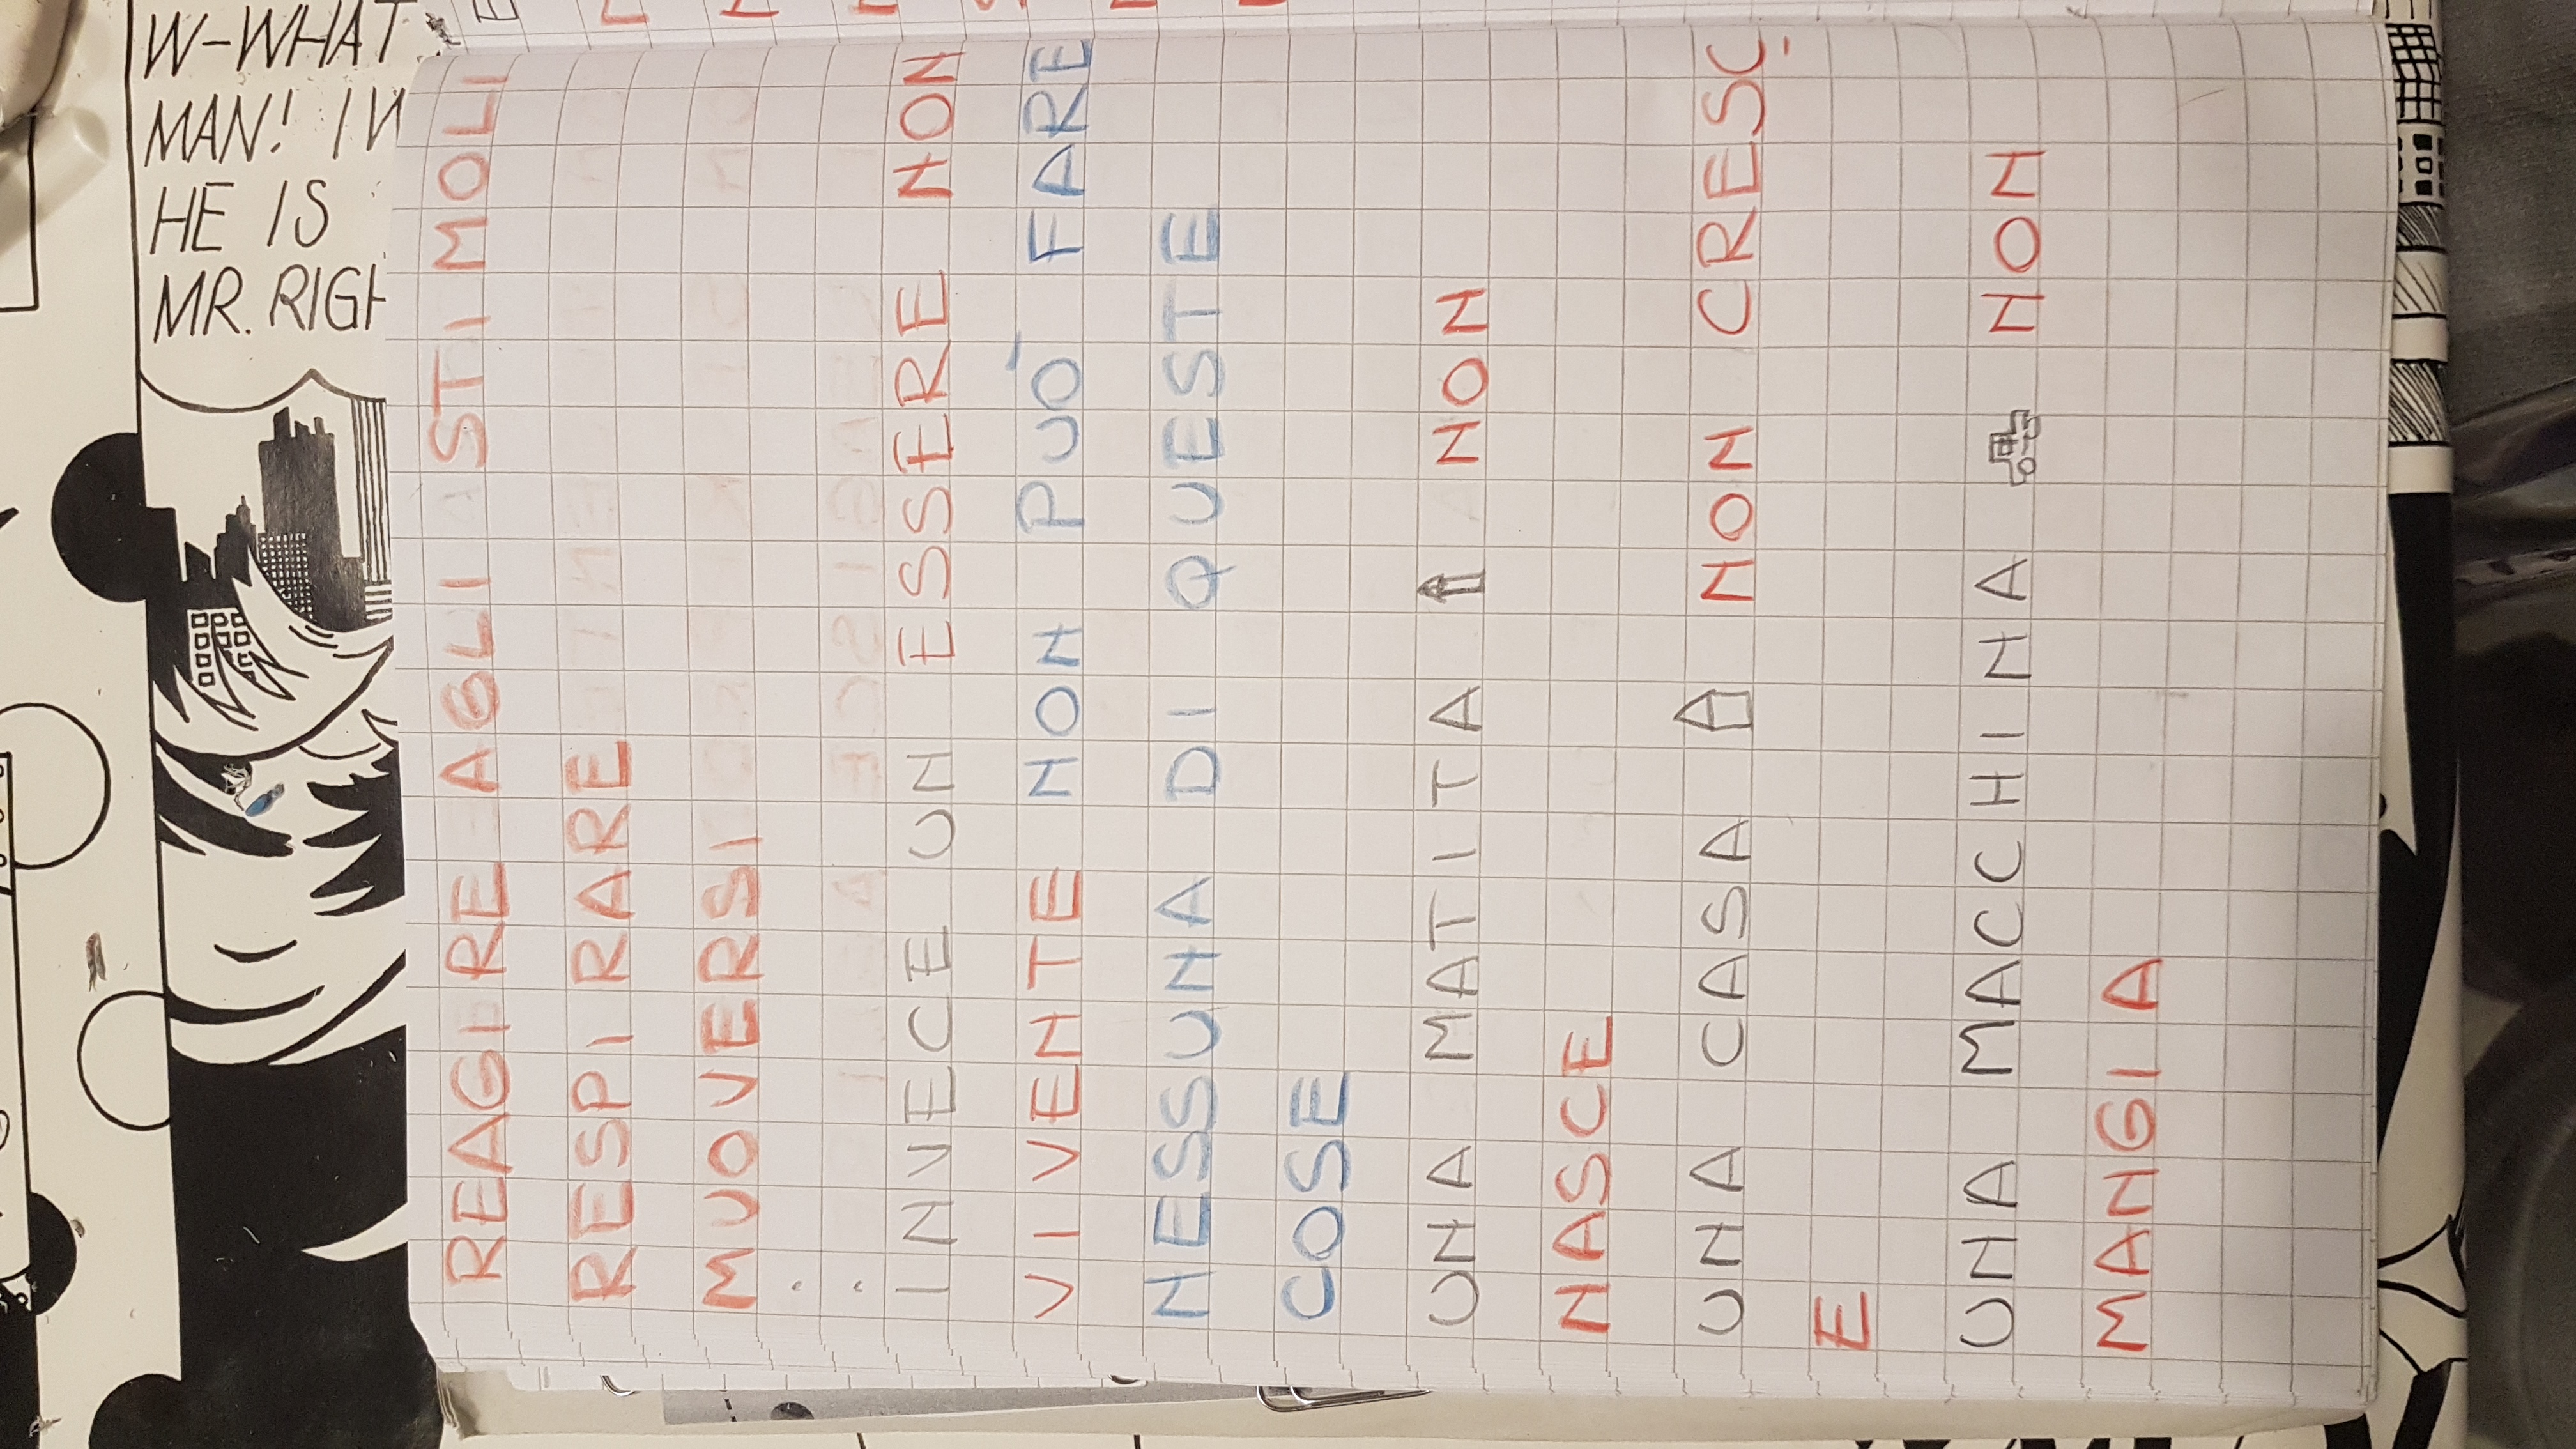 W-WHAT
MAN! I'M
HE IS
MR. RIGH
REAGIRE AGLI STIMOLI
RESPIRARE
MUOVERSI
INVECE UN ESSERE NON
VIVENTE NON PUÒ FARE
NESSUNA DI QUESTE
COSE
UNA MATITA NON
NASCE
UNA CASA NON CRESC
E
UNA MACCHINA NON
MANGIA